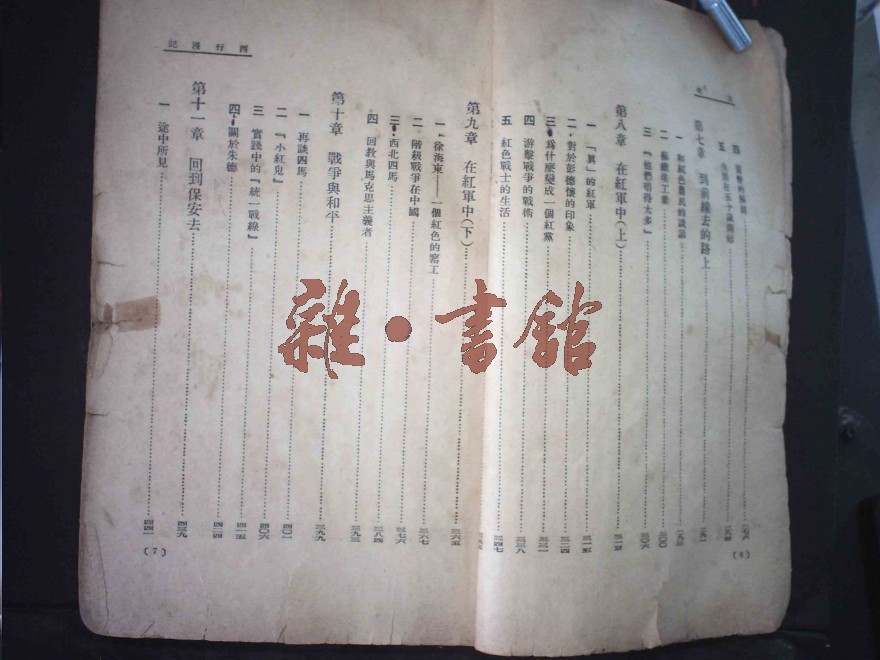 目次
四 貨幣的解剖
五 人生在五十歲開始
第七章 到前線去的路上
一 和紅色農民的談話
二 蘇維埃工業
三 『他們唱得太多』
第八章 在紅軍中(上)
一 『真』的紅軍 三一五
二 對於彭德懷的印象 三二四
三 爲什麽變成一個紅黨 三三一
四 游擊戰爭的戰術 三三八
五 紅色戰士的生活 三四七
(6)
西行漫記
第九章 在紅軍中(下) 三六五
一 徐海東——一個紅色的窰工 三六七
二 階級戰爭在中國 三七六
三 西北四馬 三八四
四 回教與馬克思主義者 三九三
第十章 戰爭與和平 三九九
一 再談四馬 四〇一
二 『小紅鬼』 四〇六
三 實踐中的『統一戰線』 四一五
四 關於朱德
第十一章 回到保安去 四三九
一 途中所見 四四一
(7)
雜·書館